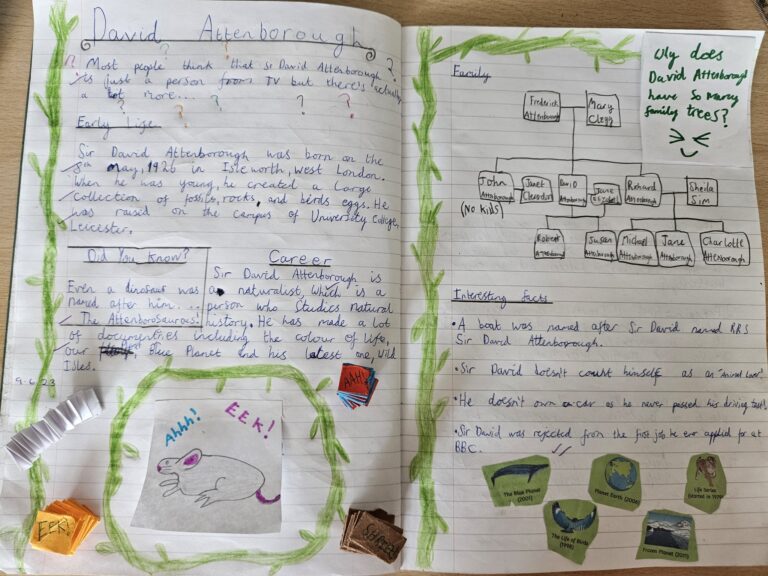 David Attenborough
Most people think that sir David Attenborough
is just a person from TV but there's actually
a lot more...
? ? ? ? ? ?
Early Life
Sir David Attenborough was born on the
8th May, 1926 in Isleworth, West London.
When he was young, he created a large
collection of fossils, rocks, and birds eggs. He
was raised on the campus of University College,
Leicester.
Did You Know?
Even a dinosaur was
named after him...
The Attenborosaurus!
Career
Sir David Attenborough is
a naturalist, which is a
person who studies natural
history. He has made a lot
of documentries including the colour of life,
our Blue Planet and his latest one, Wild
Isles.
9.6.23
Ahhh!
EEK!
AAH!
EEK!
Family
Why does
David Attenborough
have so many
family trees?
Frederick
Attenborough
Mary
Clegg
John
Attenborough
(No kids)
Janet
David
Attenborough
Jane
Richard
Attenborough
Sheila
Sim
Robert
Attenborough
Susan
Attenborough
Michael
Attenborough
Jane
Attenborough
Charlotte
Attenborough
Interesting facts
• A boat was named after Sir David named RRS
Sir David Attenborough.
• Sir David doesn't count himself as an "Animal Lover"
• He doesn't own a car as he never passed his driving test!
• Sir David was rejected from the first job he ever applied for at
BBC.
The Blue Planet
(2001)
Planet Earth (2006)
Life Series
(started in 1979)
The Life of Birds
(1998)
Frozen Planet (2011)